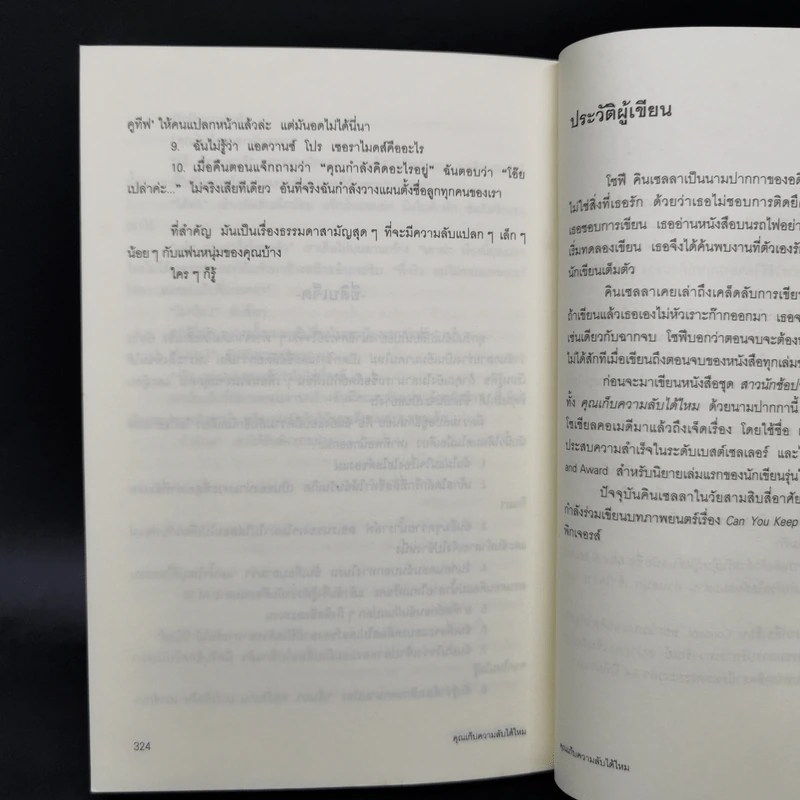 คูทีฟ' ให้คนแปลกหน้าแล้วล่ะ แต่มันอดไม่ได้นี่นา
9. ฉันไม่รู้ว่า แอดวานซ์ โปร เซอราไมดส์คืออะไร
10. เมื่อคืนตอนแจ็กถามว่า “คุณกำลังคิดอะไรอยู่” ฉันตอบว่า “โอ๊ย
เปล่าค่ะ...” ไม่จริงเสียทีเดียว อันที่จริงฉันกำลังวางแผนตั้งชื่อลูกทุกคนของเรา
ที่สำคัญ มันเป็นเรื่องธรรมดาสามัญสุดๆ ที่จะมีความลับแปลกๆ เล็กๆ
น้อยๆ กับแฟนหนุ่มของคุณบ้าง
ใครๆ ก็รู้
324
คุณเก็บความลับได้ไหม
ประวัติผู้เขียน
โซฟี คินเซลลาเป็นนามปากกาของอดี
ไม่ใช่สิ่งที่เธอรัก ด้วยว่าเธอไม่ชอบการติดยึ
เธอชอบการเขียน เธออ่านหนังสือบนรถไฟอย่า
เริ่มทดลองเขียน เธอจึงได้ค้นพบงานที่ตัวเองรั
นักเขียนเต็มตัว
คินเซลลาเคยเล่าถึงเคล็ดลับการเขีย
ถ้าเขียนแล้วเธอเองไม่หัวเราะก๊ากออกมา เธอจ
เช่นเดียวกับฉากจบ โซฟีบอกว่าตอนจบจะต้องท
ไม่ได้สักทีเมื่อเขียนถึงตอนจบของหนังสือทุกเล่มข
ก่อนจะมาเขียนหนังสือชุด สาวนักช้อป
ทั้ง คุณเก็บความลับได้ไหม ด้วยนามปากกานี้
โซเชียลคอเมดีมาแล้วถึงเจ็ดเรื่อง โดยใช้ชื่อ
ประสบความสำเร็จในระดับเบสต์เซลเลอร์ และไ
and Award สำหรับนิยายเล่มแรกของนักเขียนรุ่นใ
ปัจจุบันคินเซลลาในวัยสามสิบสี่อาศัย
กำลังร่วมเขียนบทภาพยนตร์เรื่อง Can You Keep
พิกเจอรส์
คุณเก็บความลับได้ไหม